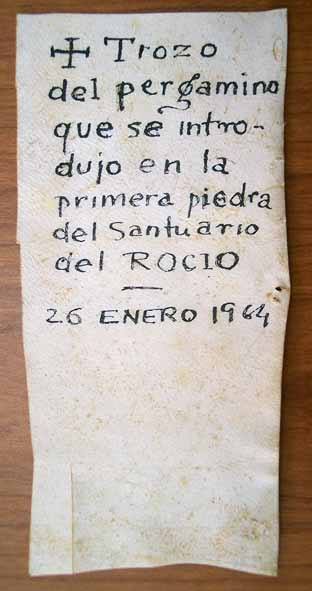 ✢ Trozo
del pergamino
que se intro-
dujo en la
primera piedra
del Santuario
del ROCIO
—
26 ENERO 1964